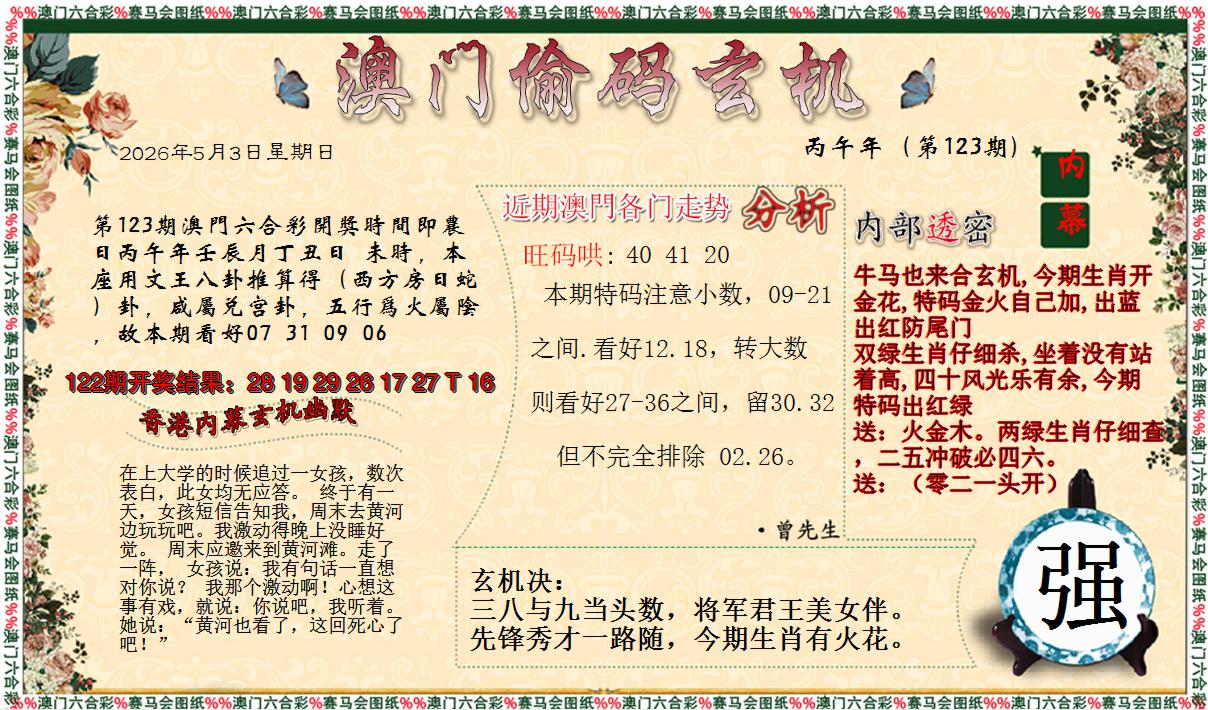 %%澳门六合彩%赛马会图纸%%澳门六合彩%赛马会图纸%%澳门六合彩%赛马会图纸%%澳门六合彩%赛马会图纸%%澳门六合彩%赛马会图纸%%澳门六合彩%赛马会图纸%%
澳门偷码玄机
2026年5月3日星期日
丙午年（第123期）
内幕
第123期澳門六合彩開獎時間即農
日丙午年壬辰月丁丑日 未時，本
座用文王八卦推算得（西方房日蛇
）卦，咸屬兑宫卦，五行爲火屬陰
，故本期看好07 31 09 06
122期开奖结果：28 19 29 26 17 27 T 16
香港内幕玄机幽默
在上大学的时候追过一女孩，数次
表白，此女均无应答。 终于有一
天，女孩短信告知我，周末去黄河
边玩玩吧。我激动得晚上没睡好
觉。 周末应邀来到黄河滩。走了
一阵， 女孩说：我有句话一直想
对你说？ 我那个激动啊！心想这
事有戏，就说：你说吧，我听着。
她说：“黄河也看了，这回死心了
吧！”
近期澳門各门走势 分析
旺码哄: 40 41 20
本期特码注意小数，09-21
之间.看好12.18，转大数
则看好27-36之间，留30.32
但不完全排除 02.26。
·曾先生
内部透密
牛马也来合玄机,今期生肖开
金花,特码金火自己加,出蓝
出红防尾门
双绿生肖仔细杀,坐着没有站
着高,四十风光乐有余,今期
特码出红绿
送：火金木。两绿生肖仔细查
，二五冲破必四六。
送：（零二一头开）
玄机决：
三八与九当头数，将军君王美女伴。
先锋秀才一路随，今期生肖有火花。
强
%%澳门六合彩%赛马会图纸%%澳门六合彩%赛马会图纸%%澳门六合彩%赛马会图纸%%澳门六合彩%赛马会图纸%%澳门六合彩%赛马会图纸%%澳门六合彩%赛马会图纸%%